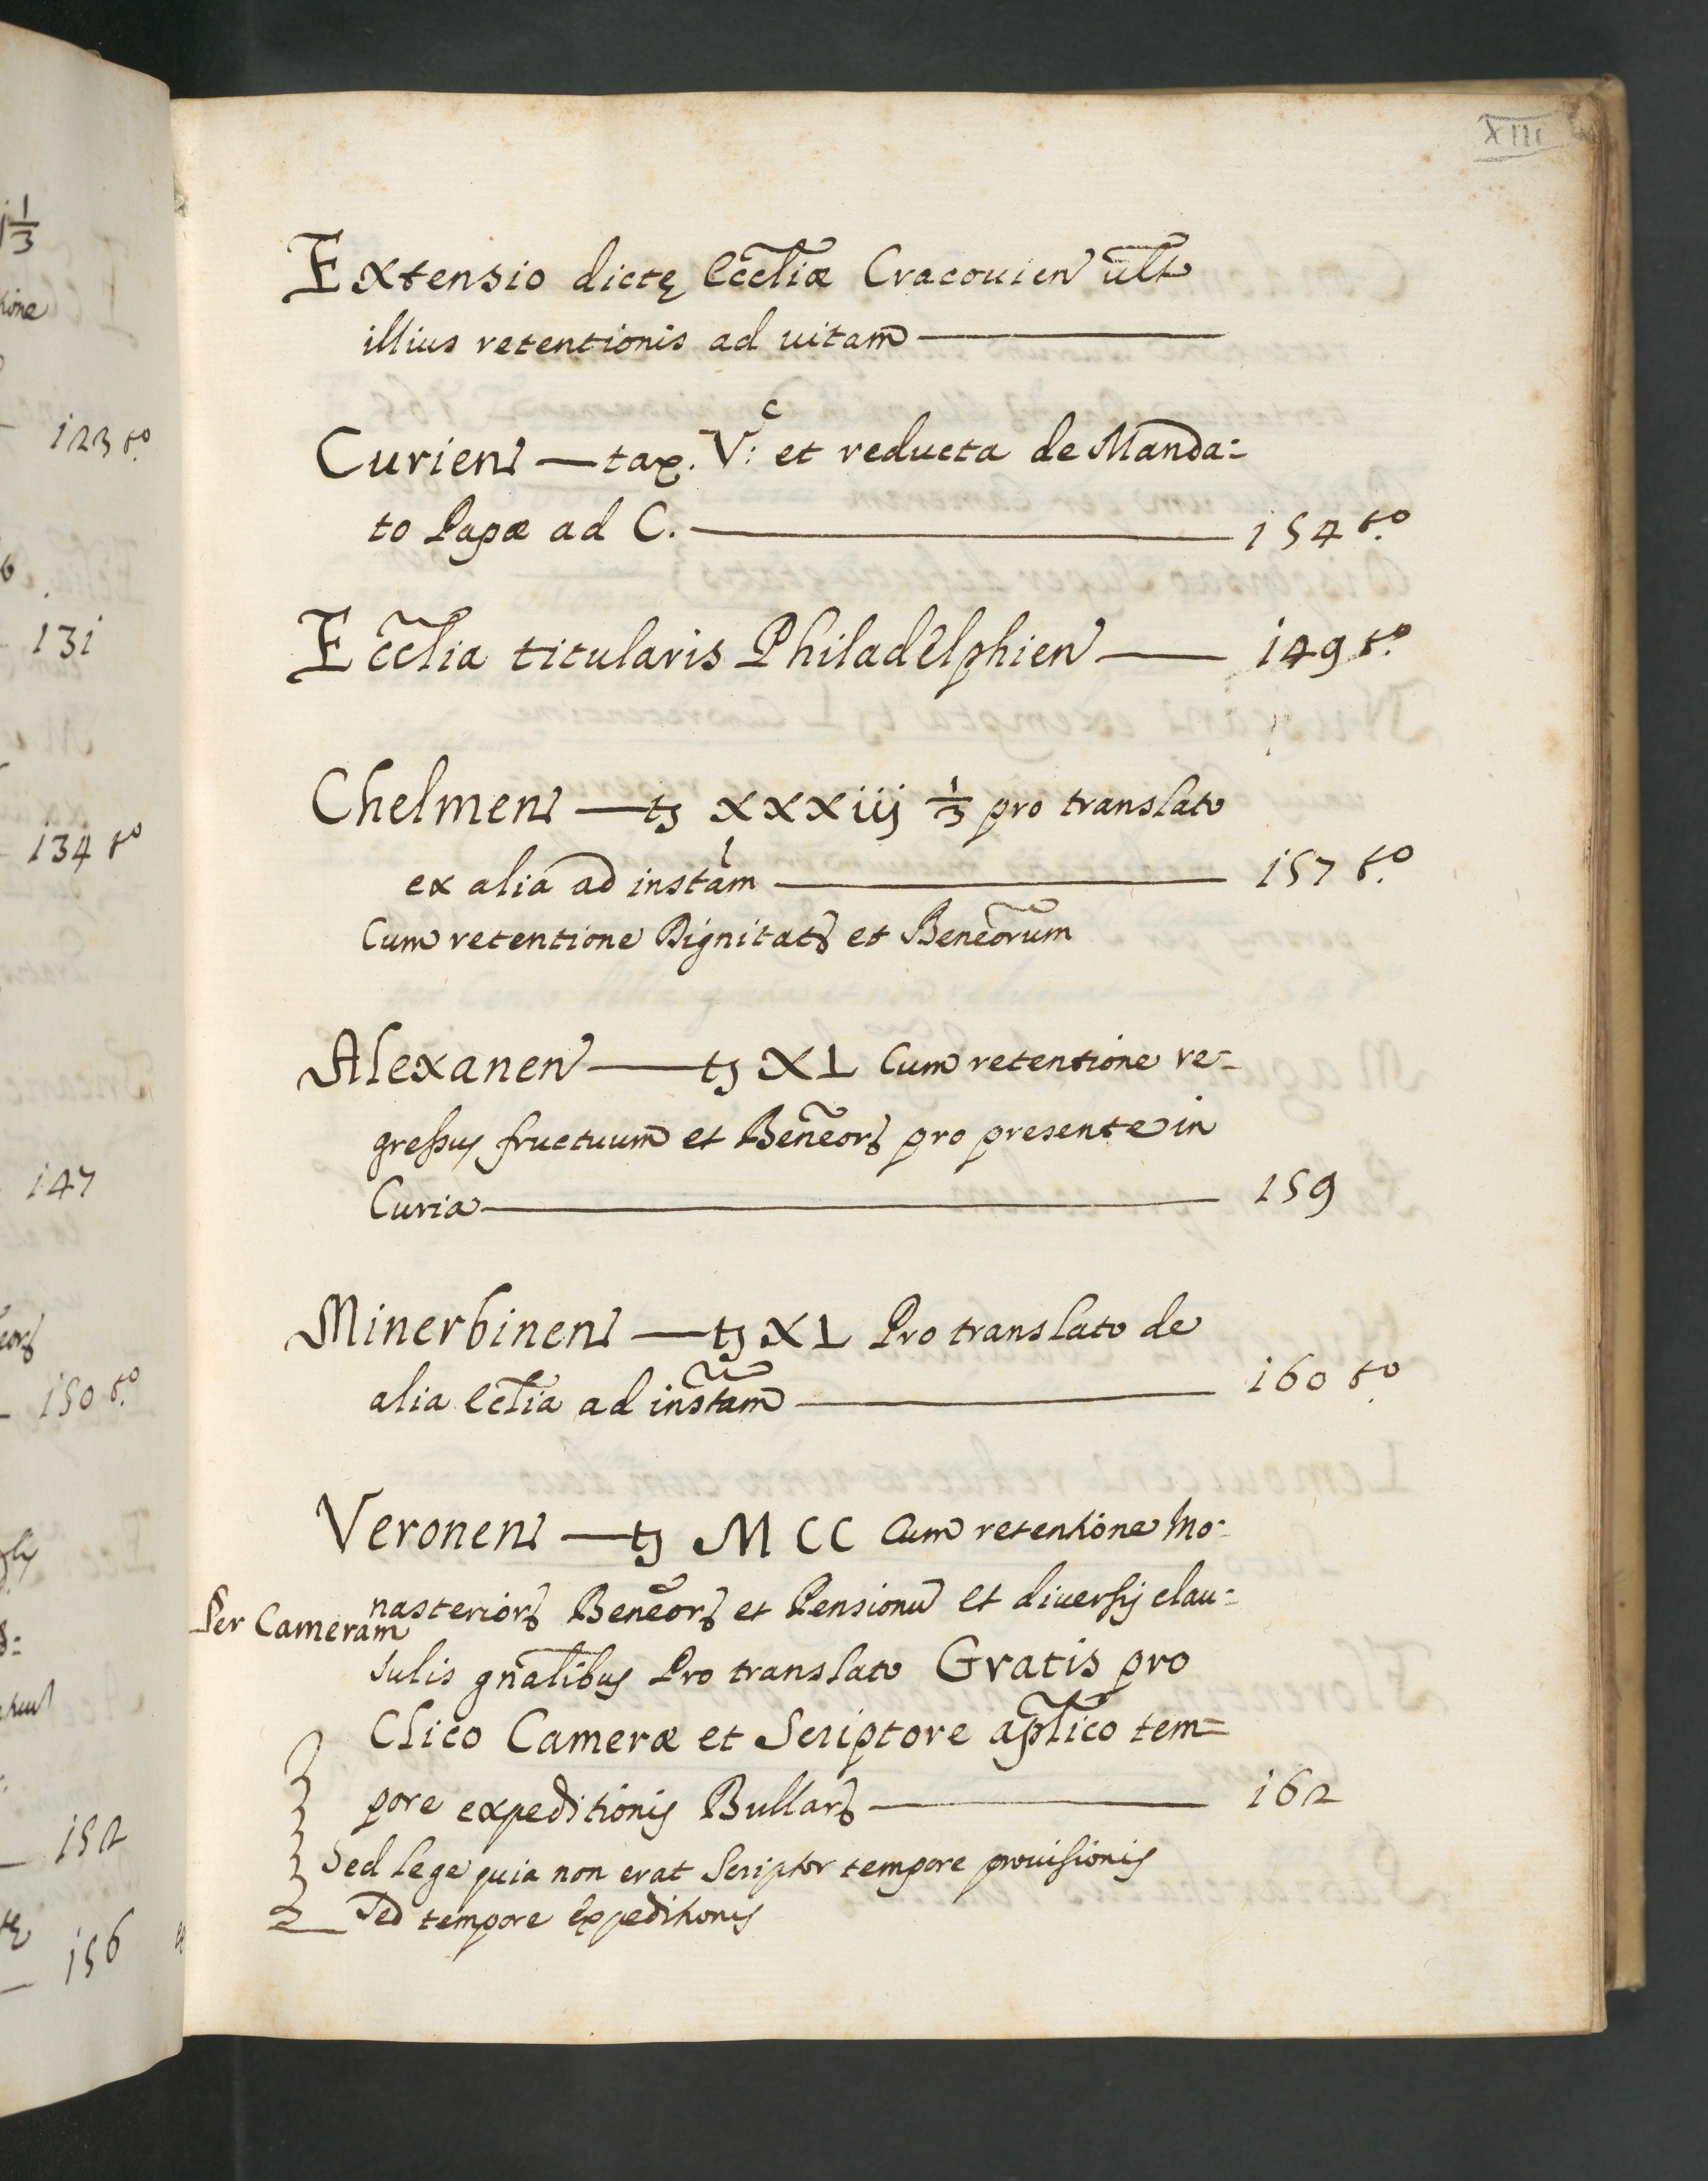 XIII
Extensio dictę Eccliæ Cracouien ult
illius retentionis ad uitam
Curien — tax. V.c et reducta de Manda=
to Papæ ad C. 154 to.
Ecclia titularis Philadelphien 149 to.
Chelmen — tz xxxiij 1/3 pro translato
ex alia ad instam 157 to.
Cum retentione Dignitatz et Beneorum
Alexanen — tz XL Cum retentione re=
gressus fructuum et Beneorz pro presente in
Curia 159
Minerbinen — tz XL Pro translato de
alia Eclia ad instam 160 to.
Veronen — tz MCC Cum retentione Mo=
nasteriorz Beneorz et Pensionu et diuersis clau=
Per Cameram
sulis gnalibus Pro translato Gratis pro
Clico Cameræ et Scriptore aplico tem=
pore expeditionis Bullarz 162
Sed lege quia non erat Scriptor tempore prouisionis
Sed tempore Expeditionis
1/3
123 to.
131
134 to
147
150 to.
152
156